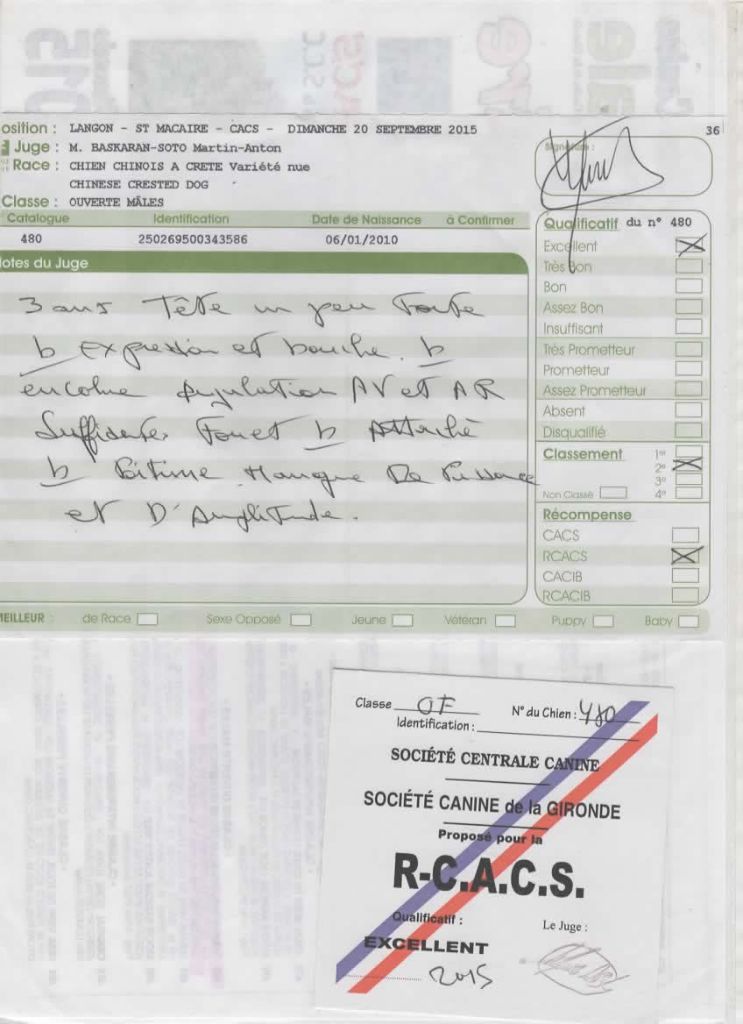 osition : LANGON - ST MACAIRE - CACS - DIMANCHE 20 SEPTEMBRE 2015
36
Juge : M. BASKARAN-SOTO Martin-Anton
Race : CHIEN CHINOIS A CRETE Variété nue
CHINESE CRESTED DOG
Classe : OUVERTE MÂLES
Catalogue Identification Date de Naissance à Confirmer
480 250269500343586 06/01/2010
otes du Juge
3 ans Tête un peu Forte
b Expression et bouche. b
encolure Angulation AV et AR
Suffisantes Fouet b Attaché
b Manque De Puissance
et D'Amplitude.
Qualificatif du n° 480
Excellent
Très Bon
Bon
Assez Bon
Insuffisant
Très Prometteur
Prometteur
Assez Prometteur
Absent
Disqualifié
Classement 1er
2e
3e
Non Classé 4e
Récompense
CACS
RCACS
CACIB
RCACIB
MEILLEUR : de Race Sexe Opposé Jeune Vétéran Puppy Baby
Classe OF N° du Chien : 480
Identification :
SOCIÉTÉ CENTRALE CANINE
SOCIÉTÉ CANINE de la GIRONDE
Proposé pour la
R-C.A.C.S.
Qualificatif : Le Juge :
EXCELLENT
2015